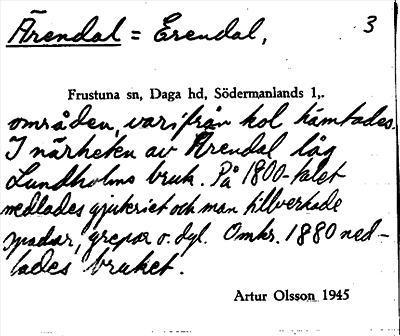 Ärendal = Erendal,
3
Frustuna sn, Daga hd, Södermanlands l,.
områden, varifrån kol hämtades.
I närheten av Ärendal låg
Lundholms bruk. På 1800-talet
nedlades gjuteriet och man tillverkade
spadar, grepar o. dyl. Omkr. 1880 ned-
lades bruket.
Artur Olsson 1945